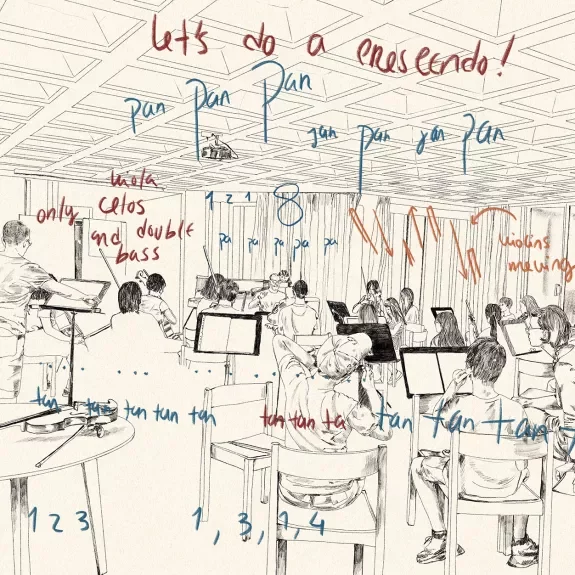 let's do a crescendo!
pan pan pan
pan pan pan
viola
only celos
and double
bass
1 2 1 8
pa pa pa pa pa
violins
moving
tan tan tan tan tan
tan tan ta
tan tan tan
1 2 3
1, 3, 1, 4